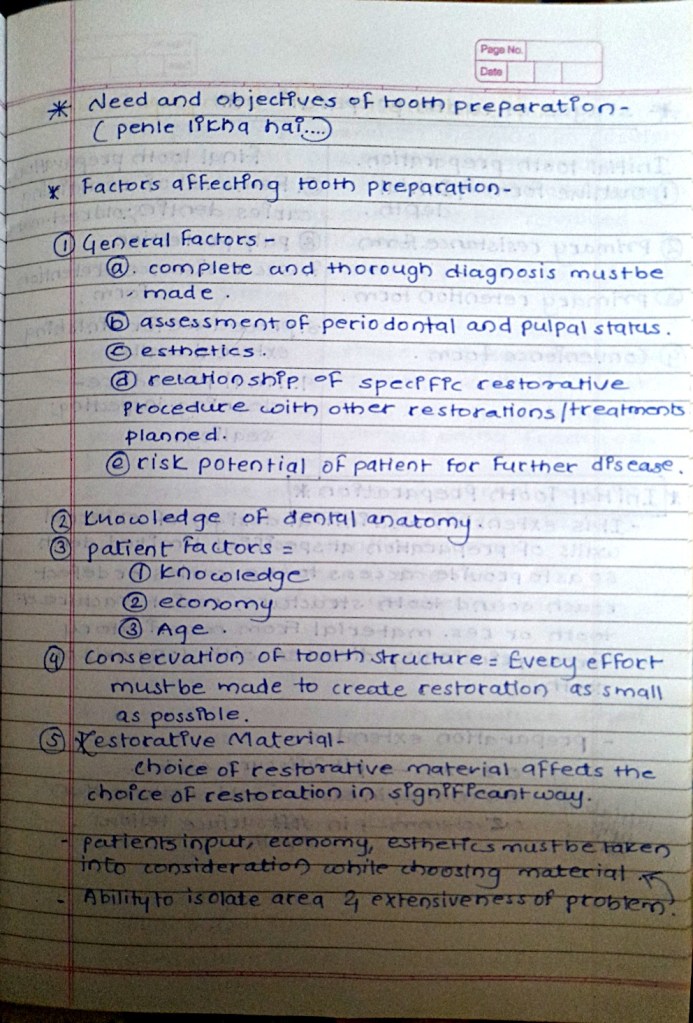 Page No.
Date
* Need and objectives of tooth preparation-
( pehle likha hai....)
* Factors affecting tooth preparation-
① General Factors -
ⓐ. complete and thorough diagnosis must be
made.
ⓑ assessment of periodontal and pulpal status.
ⓒ esthetics.
ⓓ relationship of specific restorative
procedure with other restorations/treatments
planned.
ⓔ risk potential of patient for further disease.
② Knowledge of dental anatomy.
③ patient factors =
① knowledge
② economy
③ Age.
④ Conservation of tooth structure = Every effort
must be made to create restoration as small
as possible.
⑤ Restorative Material-
choice of restorative material affects the
choice of restoration in significant way.
- patients input, economy, esthetics must be taken
into consideration while choosing material
- Ability to isolate area & extensiveness of problem.